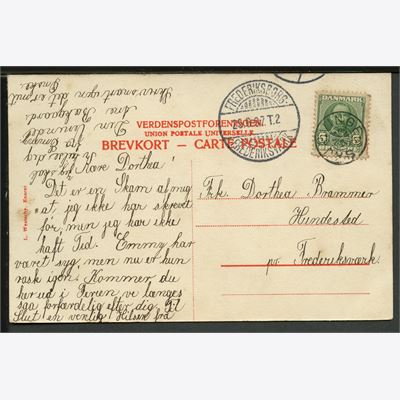 VERDENSPOSTFORENINGEN.
UNION POSTALE UNIVERSELLE.
BREVKORT – CARTE POSTALE
FREDERIKSBORG-
FREDERIKSVÆRK
T.2
DANMARK
5
L. Wanscha Eneret
Kære Dorthea!
Det er en Skam af mig
at jeg ikke har skrevet
før, men jeg har ikke
haft Tid. Emmy har
været syg men nu er hun
rask igen. Kommer du
herud i Ferien vi længes
saa forfærdelig efter dig. Vi
Slut en venlig Hilsen fra
Din
Skriv snart igen
Frk. Dorthea Brammer
Hundested
pr. Frederiksværk